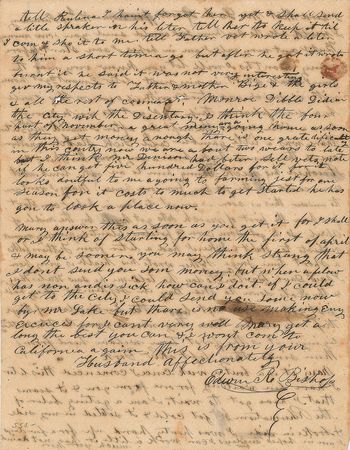 tell Paulina I haint forgot her yet & shall send
a little speaker in his liter tell her to keep it till
I com & sho it to me tell Father vet wrote a leter
to him a short time ago but after he got it wrote
he said it was not very interesting
giv my respects to Father & mother & the girls
& all the rest of Monroe Dibble Died in
the city with the Disentary I think the four
part of november a great many going home as soon
as they git money anough the is one grate
in this country now we are a bout two wears to late
but I think Mr had beter sell vets note
if he can get five hundred Dollars for it it
looks doutful to me agoing to farming Jest for one
season for it costs to much to get started he has
gon to look a place now
Mary answer this as soon as you get it for I shall
or I think of Starting for home the first of april
& may be sooner you may think strang that
I dont send you som money but when a felow
has non and is sick how can I do it if I could
get to the City I could send you some now
by mr Lake but thare is no use making eny
excuces for I cant very well Mary get a
long the best you can & I wont com to
California again This is from your
Husband affectionately
Edwin R Bishop
E